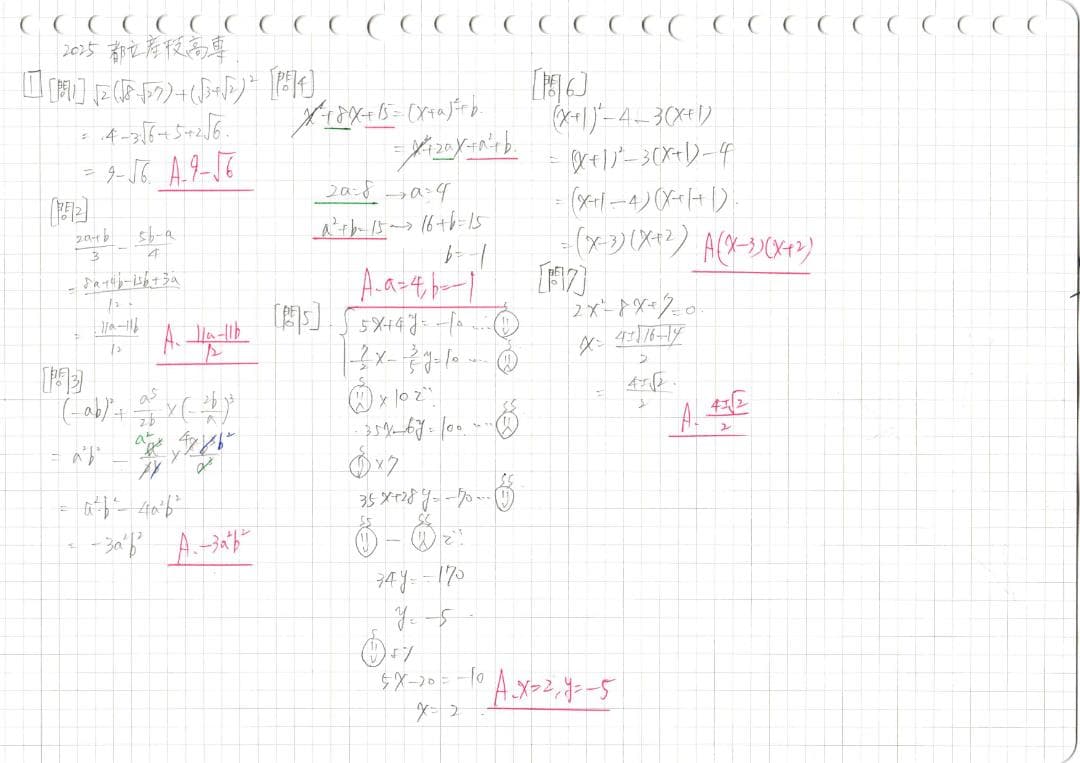 2025 都立産技高専
1 [問1] √2(√8-√27)+(√3+√2)²
= 4-3√6+5+2√6
= 9-√6 A. 9-√6
[問2]
(2a+b)/3 - (5b-a)/4
= (8a+4b-15b+3a)/12
= (11a-11b)/12 A. (11a-11b)/12
[問3]
(-ab)²+a⁵/2b×(-2b/a)³
= a²b² - a²a⁵/2b × 4 8b³b²/a³
= a²b²-4a²b²
= -3a²b² A. -3a²b²
[問4]
x²+8x+15=(x+a)²+b
= x²+2ax+a²+b
2a=8 → a=4
a²+b=15 → 16+b=15
b=-1
A. a=4, b=-1
[問5]
5x+4y=-10 …
7/2x-3/5y=10 …
×10で
35x-6y=100 …
×7
35x+28y=-70 …
- で
34y=-170
y=-5
より
5x-20=-10
x=2
A. x=2, y=-5
[問6]
(x+1)²-4-3(x+1)
= (x+1)²-3(x+1)-4
= (x+1-4)(x+1+1)
= (x-3)(x+2) A(x-3)(x+2)
[問7]
2x²-8x+7=0
x= (4±√16-14)/2
= (4±√2)/2
A. (4±√2)/2